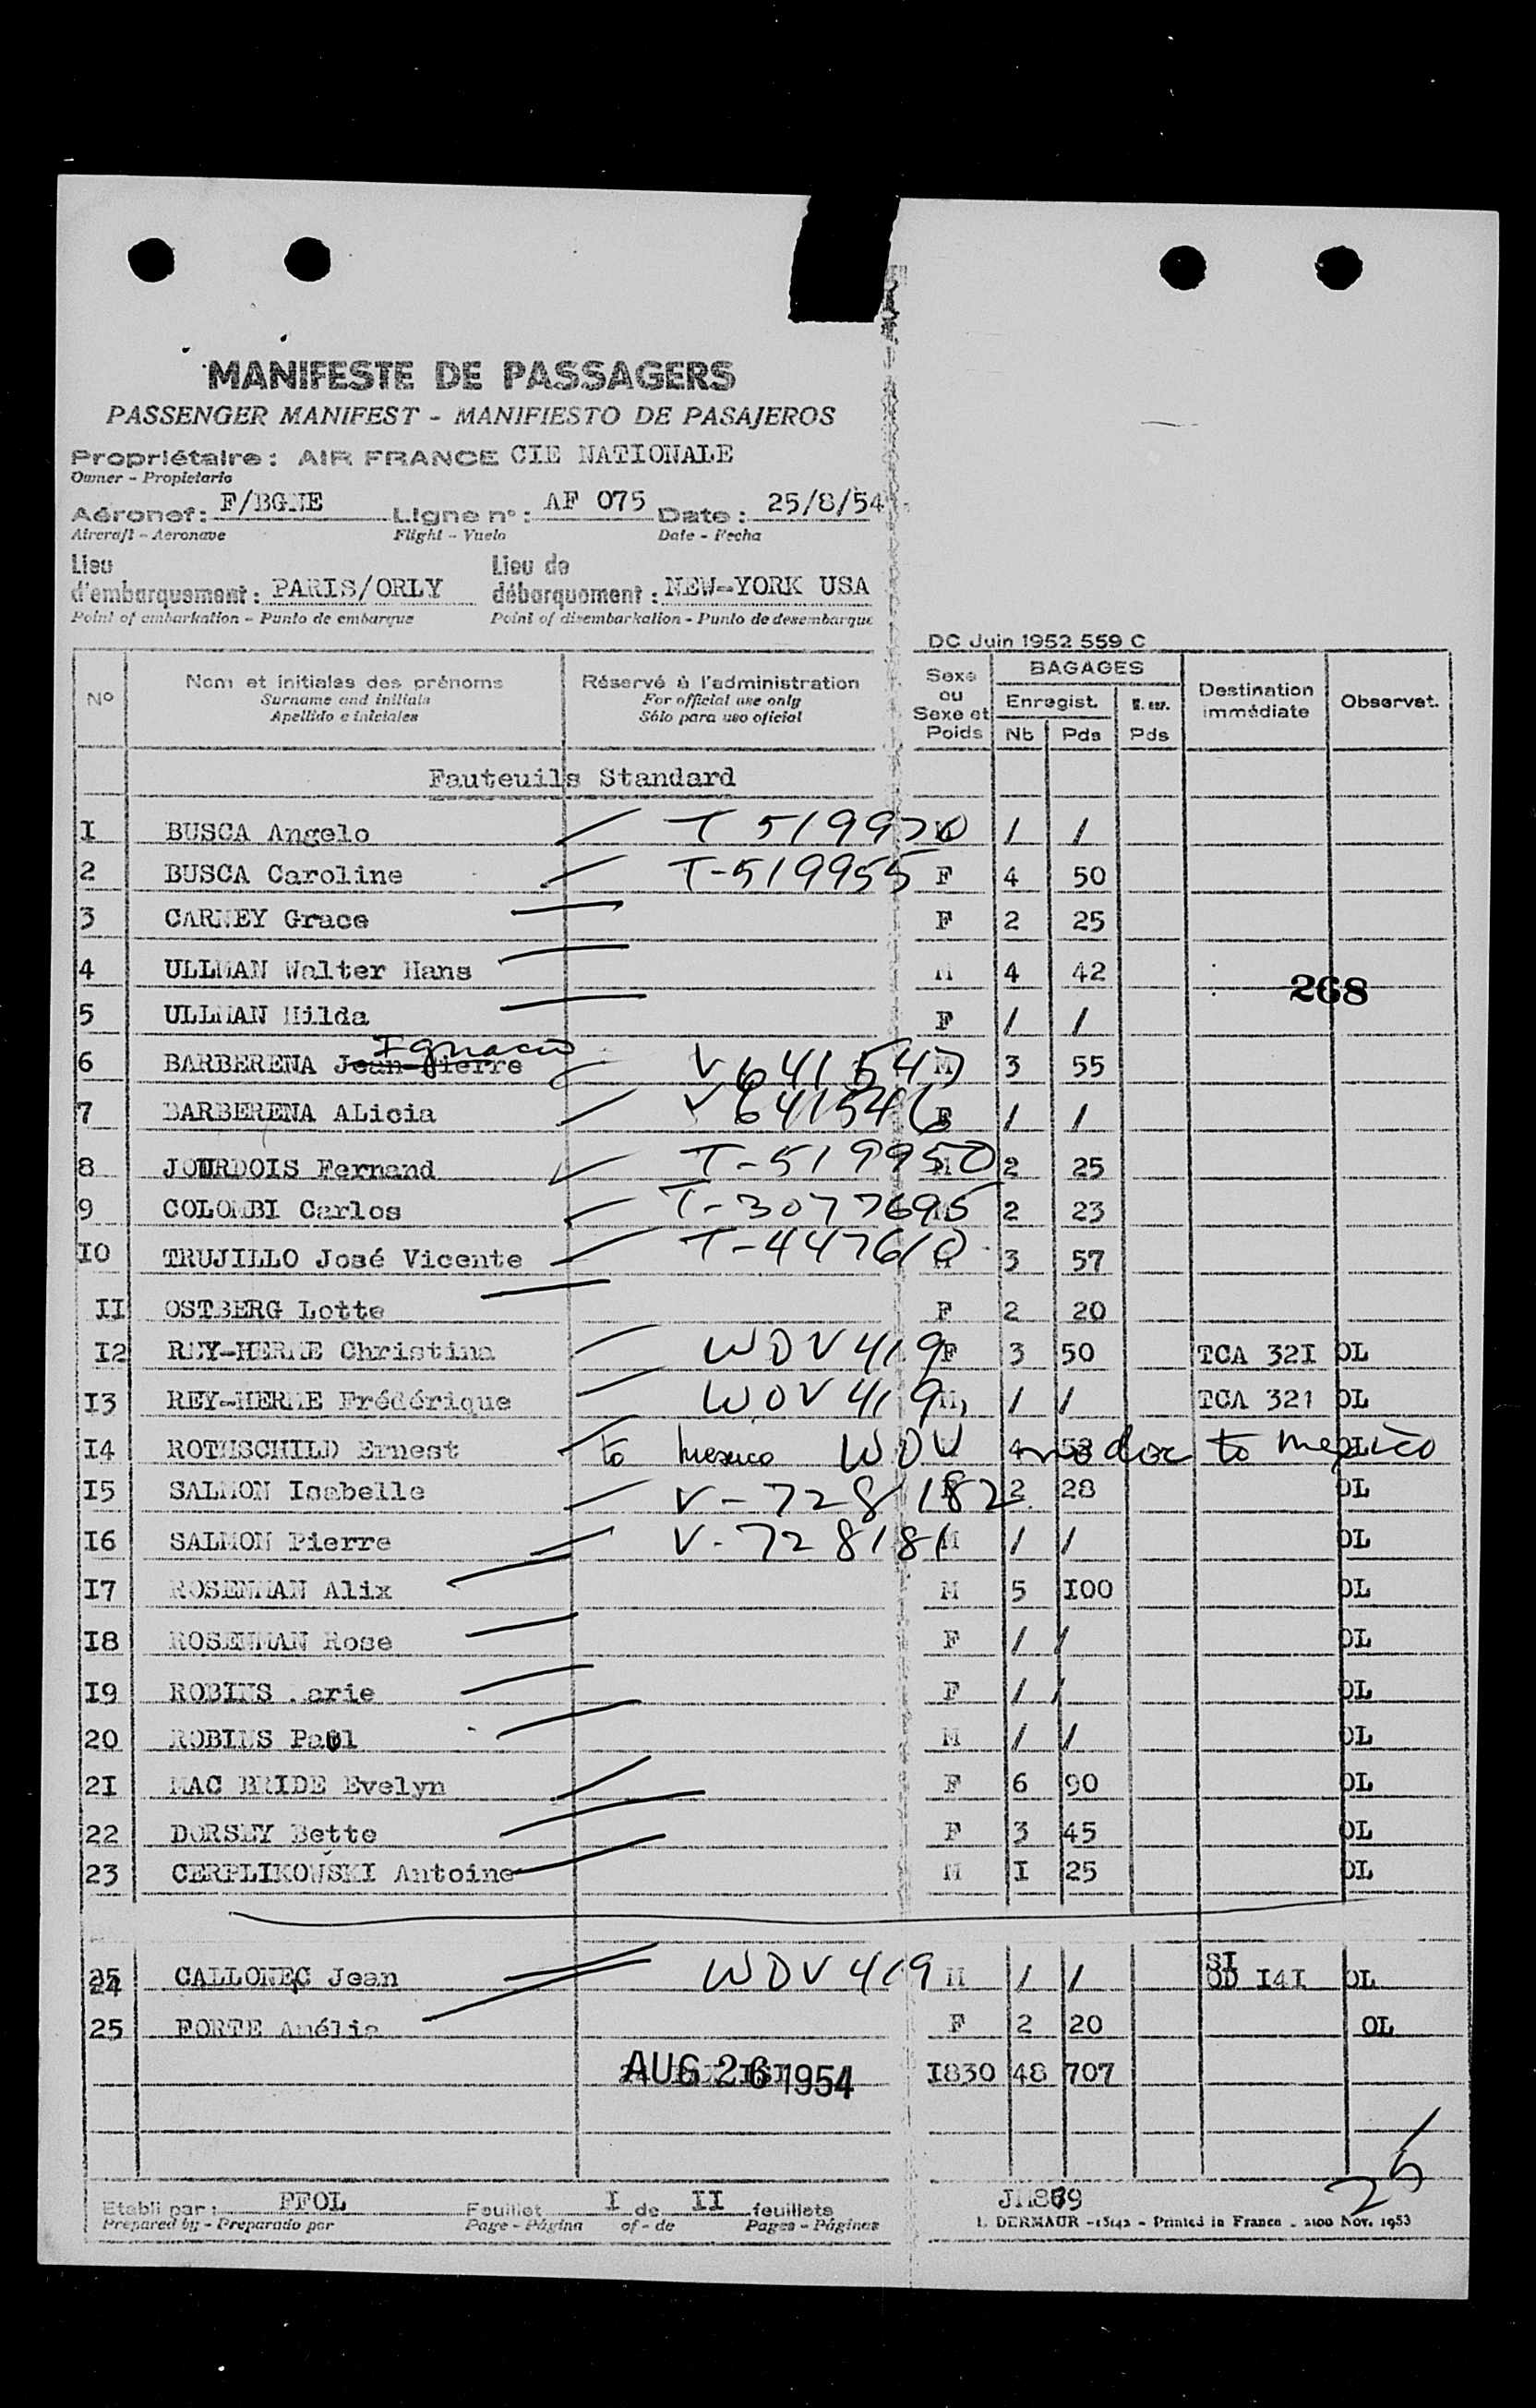 MANIFESTE DE PASSAGERS
PASSENGER MANIFEST - MANIFIESTO DE PASAJEROS
Propriétaire: AIR FRANCE CIE NATIONALE
Owner - Propietario
Aéronef: F/BGNE Ligne n°: AF 075 Date: 25/8/54
Aircraft - Aeronave Flight - Vuelo Date - Fecha
Lieu Lieu de
d'embarquement: PARIS/ORLY débarquement: NEW-YORK USA
Point of embarkation - Punto de embarque Point of disembarkation - Punto de desembarque
DC Juin 1952 559 C
N° Nom et initiales des prénoms Réservé à l'administration Sexe ou Sexe et Poids BAGAGES Destination immédiate Observat.
Surname and initials For official use only Enregist.
Apellido e iniciales Sólo para uso oficial Nb Pds Pds
Fauteuils Standard
I BUSCA Angelo T 519970 / /
2 BUSCA Caroline T-519955 F 4 50
3 CARNEY Grace F 2 25
4 ULLMAN Walter Hans M 4 42
268
5 ULLMAN Hilda F / /
6 BARBERENA Jean-Pierre Ignacio V641547 M 3 55
7 BARBERENA ALicia V641546 F / /
8 JOURDOIS Fernand T-519950 M 2 25
9 COLOMBI Carlos T-3077695 2 23
IO TRUJILLO José Vicente T-447610 3 57
II OSTBERG Lotte F 2 20
I2 REY-HERME Christina WDV 419 F 3 50 TCA 32I OL
I3 REY-HERME Frédérique WDV 419 M / / TCA 321 OL
I4 ROTHSCHILD Ernest to Mexico WDV 4 no doc to Mexico OL
I5 SALMON Isabelle V-728182 F 2 28 OL
I6 SALMON Pierre V-728181 M / / OL
I7 ROSENMAN Alix M 5 I00 OL
I8 ROSENMAN Rose F / / OL
I9 ROBINS .arie F / / OL
20 ROBINS Paul M / / OL
2I MAC BRIDE Evelyn F 6 90 OL
22 DORSEY Bette F 3 45 OL
23 CERPLIKOWSKI Antoine M I 25 OL
24 CALLONEC Jean WDV 419 M / / SI OD I4I OL
25 FORTE Amélie F 2 20 OL
AUG 26 1954 I830 48 707
25
Etabli par: PFOL Feuillet I de II feuillets JM869
Prepared by - Preparado por Page - Página of - de Pages - Páginas I. DERMAUR - 15142 - Printed in France - 2100 Nov. 1953